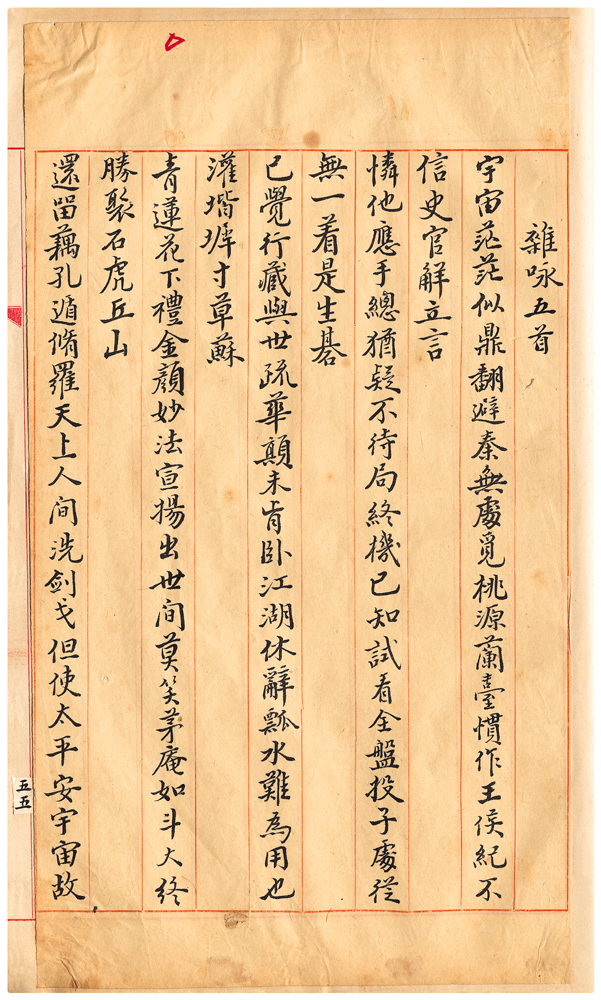 雜咏五首
宇宙茫茫似鼎翻避秦無處覓桃源蘭臺慣作王侯紀不
信史官解立言
憐他應手總猶疑不待局終機已知試看全盤投子處從
無一着是生碁
已覺行藏與世疏華顛未肯卧江湖休辭瓢水難為用也
灌堦墀寸草蘇
青蓮花下禮金顏妙法宣揚出世間莫笑茅庵如斗大終
勝聚石虎丘山
還留藕孔遁脩羅天上人間洗劍戈但使太平安宇宙故
五五